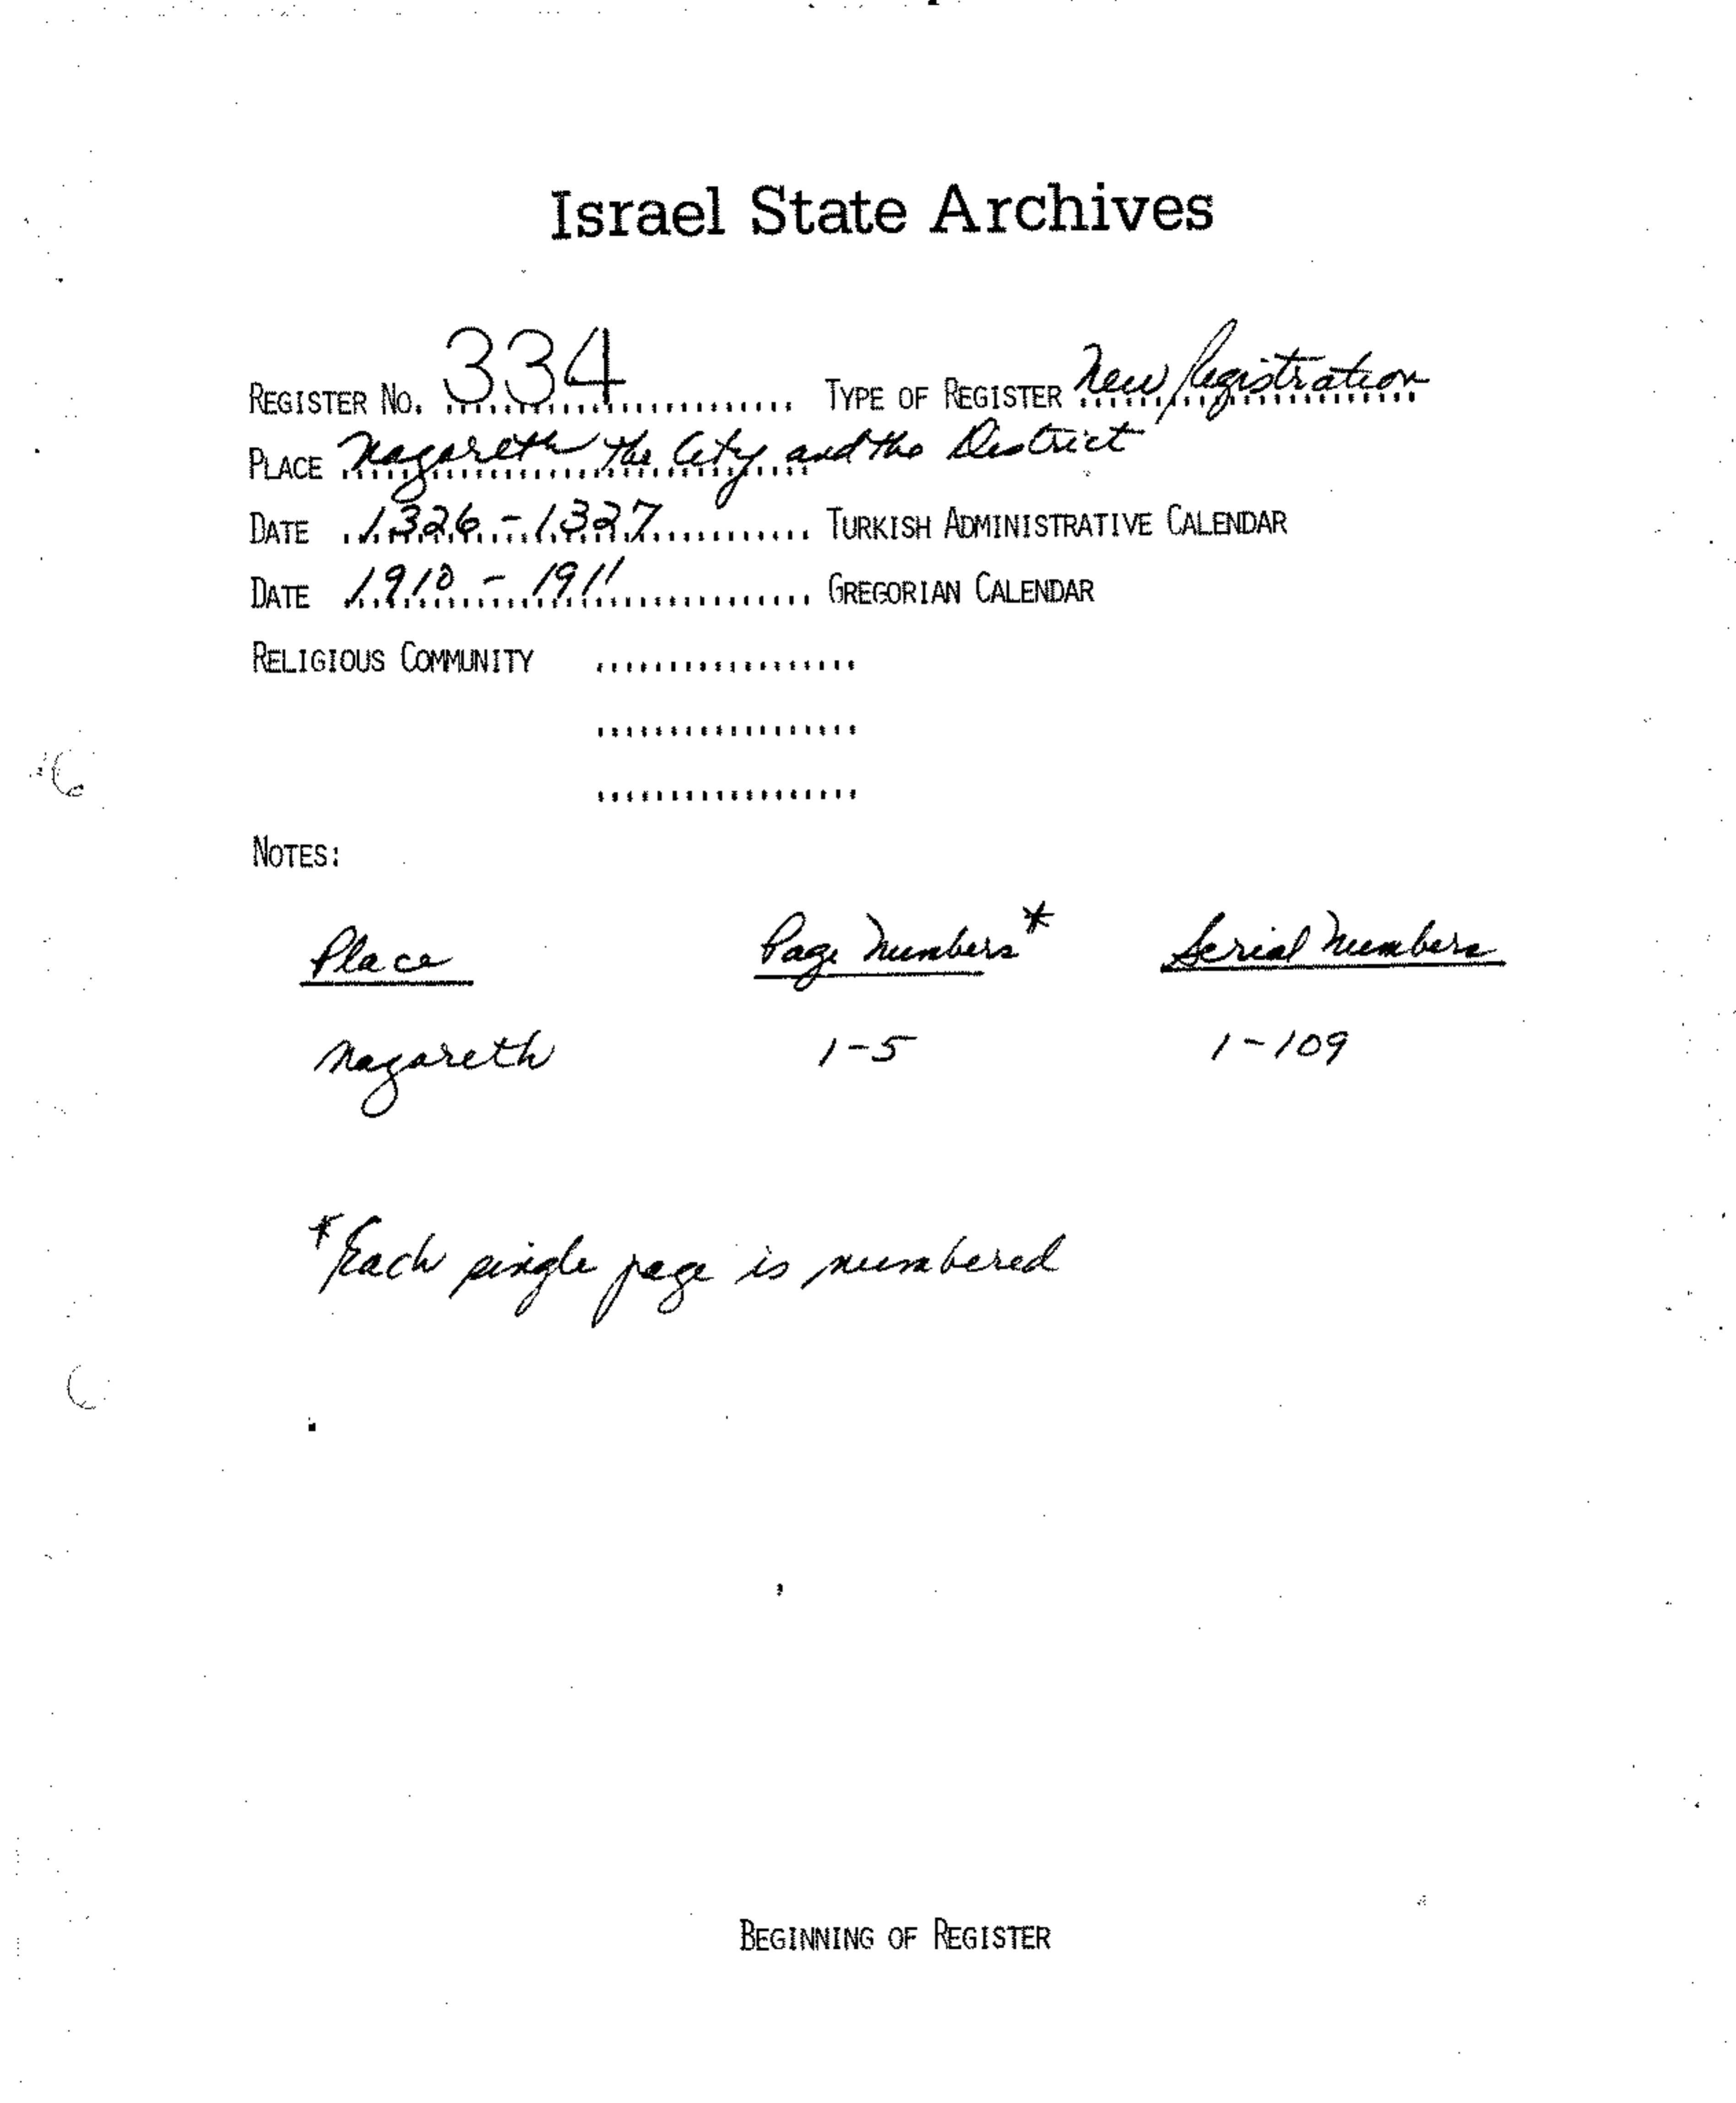 Israel State Archives
REGISTER NO. 334 TYPE OF REGISTER New Registration
PLACE Nazareth the City and the District
DATE 1326-1327 TURKISH ADMINISTRATIVE CALENDAR
DATE 1910-1911 GREGORIAN CALENDAR
RELIGIOUS COMMUNITY
NOTES:
Place Page Numbers* Serial Numbers
Nazareth 1-5 1-109
*Each single page is numbered
BEGINNING OF REGISTER